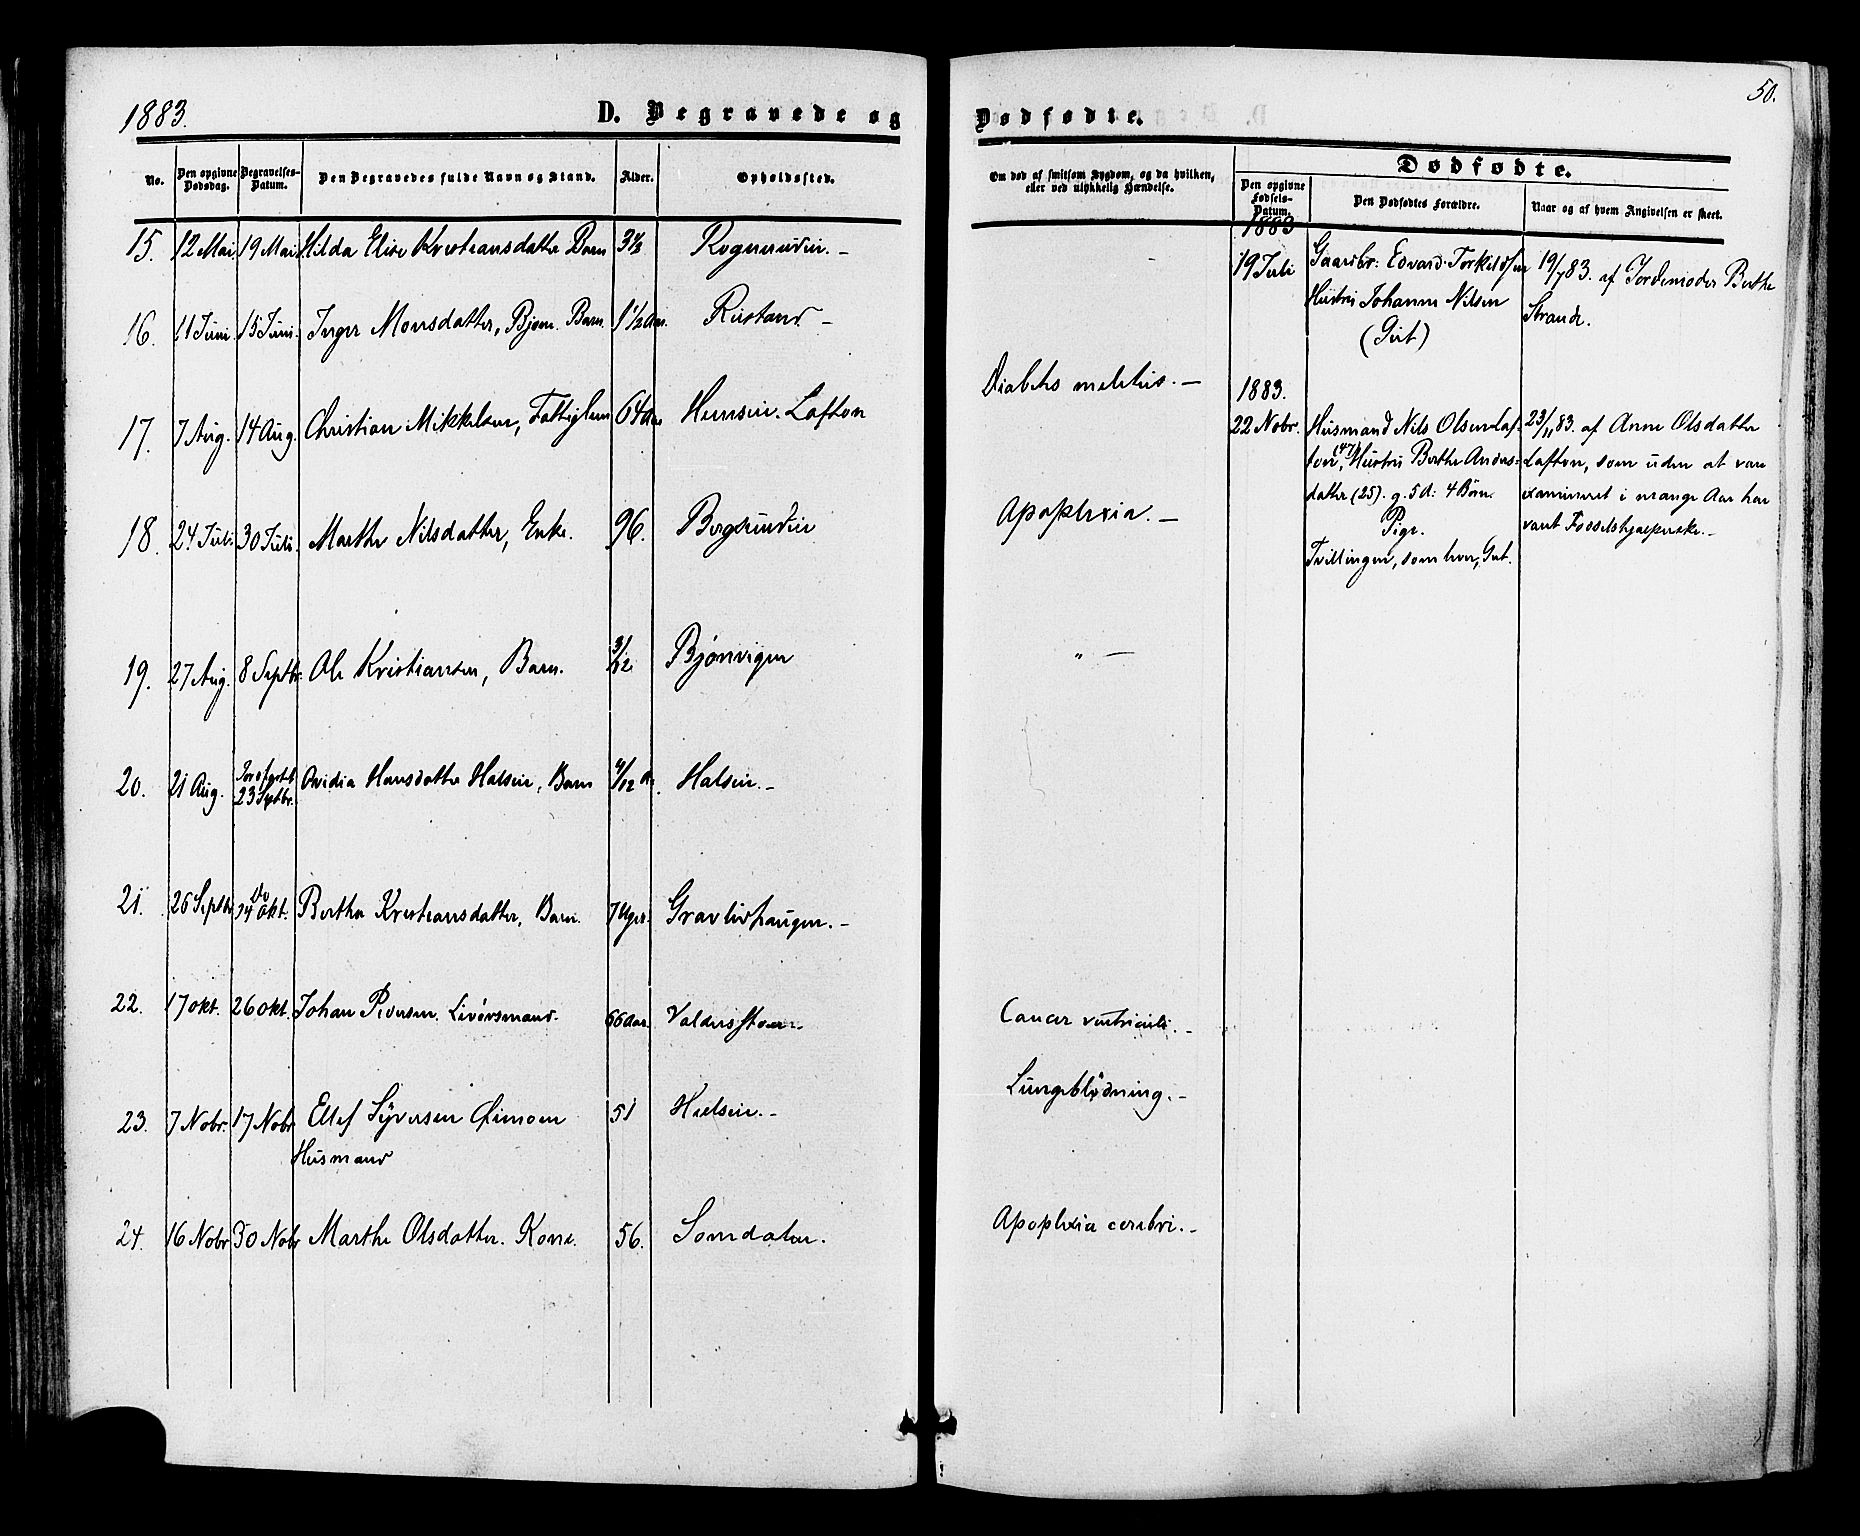 1883.
D. Begravede og
No.
Den opgivne Dødsdag.
Begravelses-Datum.
Den Begravedes fulde Navn og Stand.
Alder.
Opholdssted.
15. 12 Mai 19 Mai Hilda Elise Kristiansdatter Barn 3½ Rognerudin. –
16. 11 Juni 15 Juni. Inger Monsdatter, Bjørn. Barn 1 1/2 Aar. Rustand –
17. 7 Aug. 14 Aug. Christian Mikkelsen, Fattiglem 64 Aar Hemsein. Lafton
18. 24 Juli 30 Juli. Marthe Nilsdatter, Enke. 96. Bergerudin
19. 27 Aug. 8 Septbr. Ole Kristiansen, Barn. 3/12 Bjønvigen
20. 21 Aug. 23 Septbr. Ovidia Hansdatter Halsein, Barn 4/12 A. Halsein. –
21. 26 Septbr 14 Okt. Berthe Kristiansdatter, Barn. 7 Uger. Gravlivhaugen. –
22. 17 Okt. 26 Okt. Johan Iversen. Livørsmand. 66 Aar.
23. 7 Nobr. 17 Nobr Ellef Syversen 51 Hielsein. –
Husmand
24. 16 Nobr 30 Nobr Marthe Olsdatter. Kone. 56. Somdalen.
50.
Dødfødte.
Om død af smitsom Sygdom, og da hvilken,
eller ved ulykkelig Hændelse.
Dødfødte.
Den opgivne Fødsels-Datum.
Den Dødfødtes Forældre.
Naar og af hvem Angivelsen er skeet.
1883
19 Juli Gaardbr: Edvard Torkildsen 19/7 83. af Jordemoder Berthe
Hustru Johanne Nilsen Strande.
(Gut)
Diabetes melitus. –
1883.
22 Nobr. Husmand Nils Olsen Laf- 23/11 83. af Anne Olsdatter
ton (47), Hustru Berthe Anders- Lafton, som uden at være
datter (25). g. 5 d: 4 Børn. examineret i mange Aar har
Pige. været Fødselshjælperske. –
Tvillinger, som hver, Gut.
Apoplexia. –
" –
Cancer ventriculi. –
Lungeblødning. –
Apoplexia cerebri. –